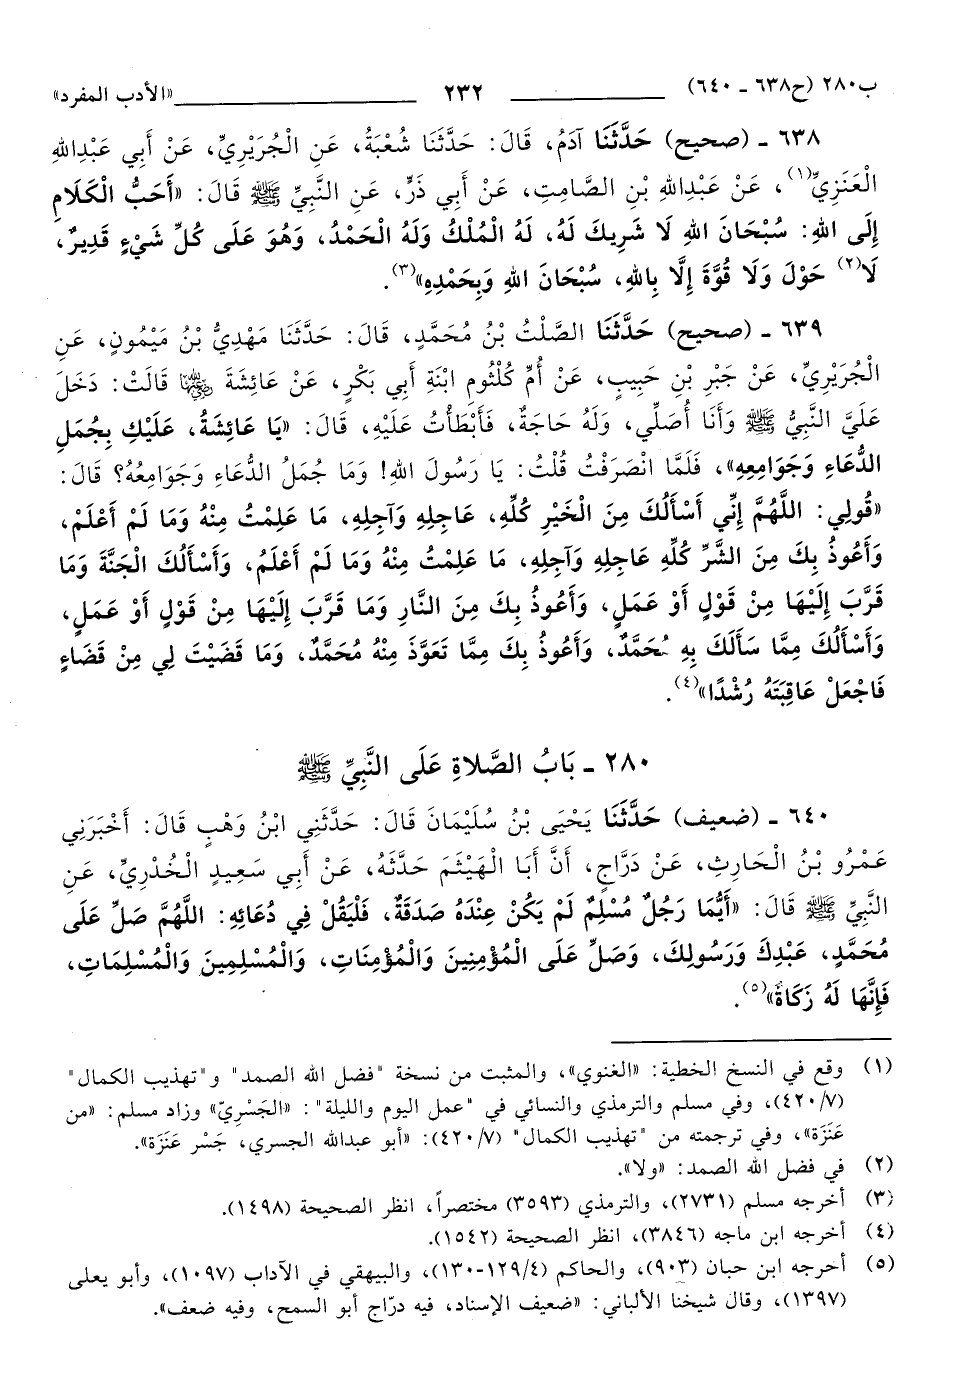 ب٢٨٠ (ح٦٣٨ - ٦٤٠) ٢٣٢ «الأدب المفرد»
٦٣٨ - (صحيح) حَدَّثَنَا آدَمُ، قَالَ: حَدَّثَنَا شُعْبَةُ، عَنِ الْجُرَيْرِيِّ، عَنْ أَبِي عَبْدِاللهِ
الْعَنَزِيِّ(١)، عَنْ عَبْدِاللهِ بْنِ الصَّامِتِ، عَنْ أَبِي ذَرٍّ، عَنِ النَّبِيِّ ﷺ قَالَ: «أَحَبُّ الْكَلَامِ
إِلَى اللهِ: سُبْحَانَ اللهِ لَا شَرِيكَ لَهُ، لَهُ الْمُلْكُ وَلَهُ الْحَمْدُ، وَهُوَ عَلَى كُلِّ شَيْءٍ قَدِيرٌ،
لَا(٢) حَوْلَ وَلَا قُوَّةَ إِلَّا بِاللهِ، سُبْحَانَ اللهِ وَبِحَمْدِهِ»(٣).
٦٣٩ - (صحيح) حَدَّثَنَا الصَّلْتُ بْنُ مُحَمَّدٍ، قَالَ: حَدَّثَنَا مَهْدِيُّ بْنُ مَيْمُونٍ، عَنِ
الْجُرَيْرِيِّ، عَنْ جَبْرِ بْنِ حَبِيبٍ، عَنْ أُمِّ كُلْثُومِ ابْنَةِ أَبِي بَكْرٍ، عَنْ عَائِشَةَ رضي الله عنها قَالَتْ: دَخَلَ
عَلَيَّ النَّبِيُّ ﷺ وَأَنَا أُصَلِّي، وَلَهُ حَاجَةٌ، فَأَبْطَأْتُ عَلَيْهِ، قَالَ: «يَا عَائِشَةُ، عَلَيْكِ بِجُمَلِ
الدُّعَاءِ وَجَوَامِعِهِ»، فَلَمَّا انْصَرَفْتُ قُلْتُ: يَا رَسُولَ اللهِ! وَمَا جُمَلُ الدُّعَاءِ وَجَوَامِعُهُ؟ قَالَ:
«قُولِي: اللَّهُمَّ إِنِّي أَسْأَلُكَ مِنَ الْخَيْرِ كُلِّهِ، عَاجِلِهِ وَآجِلِهِ، مَا عَلِمْتُ مِنْهُ وَمَا لَمْ أَعْلَمْ،
وَأَعُوذُ بِكَ مِنَ الشَّرِّ كُلِّهِ عَاجِلِهِ وَآجِلِهِ، مَا عَلِمْتُ مِنْهُ وَمَا لَمْ أَعْلَمُ، وَأَسْأَلُكَ الْجَنَّةَ وَمَا
قَرَّبَ إِلَيْهَا مِنْ قَوْلٍ أَوْ عَمَلٍ، وَأَعُوذُ بِكَ مِنَ النَّارِ وَمَا قَرَّبَ إِلَيْهَا مِنْ قَوْلٍ أَوْ عَمَلٍ،
وَأَسْأَلُكَ مِمَّا سَأَلَكَ بِهِ مُحَمَّدٌ، وَأَعُوذُ بِكَ مِمَّا تَعَوَّذَ مِنْهُ مُحَمَّدٌ، وَمَا قَضَيْتَ لِي مِنْ قَضَاءٍ
فَاجْعَلْ عَاقِبَتَهُ رُشْدًا»(٤).
٢٨٠ - بَابُ الصَّلَاةِ عَلَى النَّبِيِّ ﷺ
٦٤٠ - (ضعيف) حَدَّثَنَا يَحْيَى بْنُ سُلَيْمَانَ قَالَ: حَدَّثَنِي ابْنُ وَهْبٍ قَالَ: أَخْبَرَنِي
عَمْرُو بْنُ الْحَارِثِ، عَنْ دَرَّاجٍ، أَنَّ أَبَا الْهَيْثَمِ حَدَّثَهُ، عَنْ أَبِي سَعِيدٍ الْخُدْرِيِّ، عَنِ
النَّبِيِّ ﷺ قَالَ: «أَيُّمَا رَجُلٌ مُسْلِمٌ لَمْ يَكُنْ عِنْدَهُ صَدَقَةٌ، فَلْيَقُلْ فِي دُعَائِهِ: اللَّهُمَّ صَلِّ عَلَى
مُحَمَّدٍ، عَبْدِكَ وَرَسُولِكَ، وَصَلِّ عَلَى الْمُؤْمِنِينَ وَالْمُؤْمِنَاتِ، وَالْمُسْلِمِينَ وَالْمُسْلِمَاتِ،
فَإِنَّهَا لَهُ زَكَاةٌ»(٥).
(١) وقع في النسخ الخطية: «الغنوي»، والمثبت من نسخة "فضل الله الصمد" و"تهذيب الكمال"
(٧/٤٢٠)، وفي مسلم والترمذي والنسائي في "عمل اليوم والليلة": «الجَسْرِيّ» وزاد مسلم: «من
عَنَزَة»، وفي ترجمته من "تهذيب الكمال" (٧/٤٢٠): «أبو عبدالله الجسري، جَسْر عَنَزَة».
(٢) في فضل الله الصمد: «ولا».
(٣) أخرجه مسلم (٢٧٣١)، والترمذي (٣٥٩٣) مختصراً، انظر الصحيحة (١٤٩٨).
(٤) أخرجه ابن ماجه (٣٨٤٦)، انظر الصحيحة (١٥٤٢).
(٥) أخرجه ابن حبان (٩٠٣)، والحاكم (٤/١٢٩-١٣٠)، والبيهقي في الآداب (١٠٩٧)، وأبو يعلى
(١٣٩٧)، وقال شيخنا الألباني: «ضعيف الإسناد، فيه درّاج أبو السمح، وفيه ضعف».